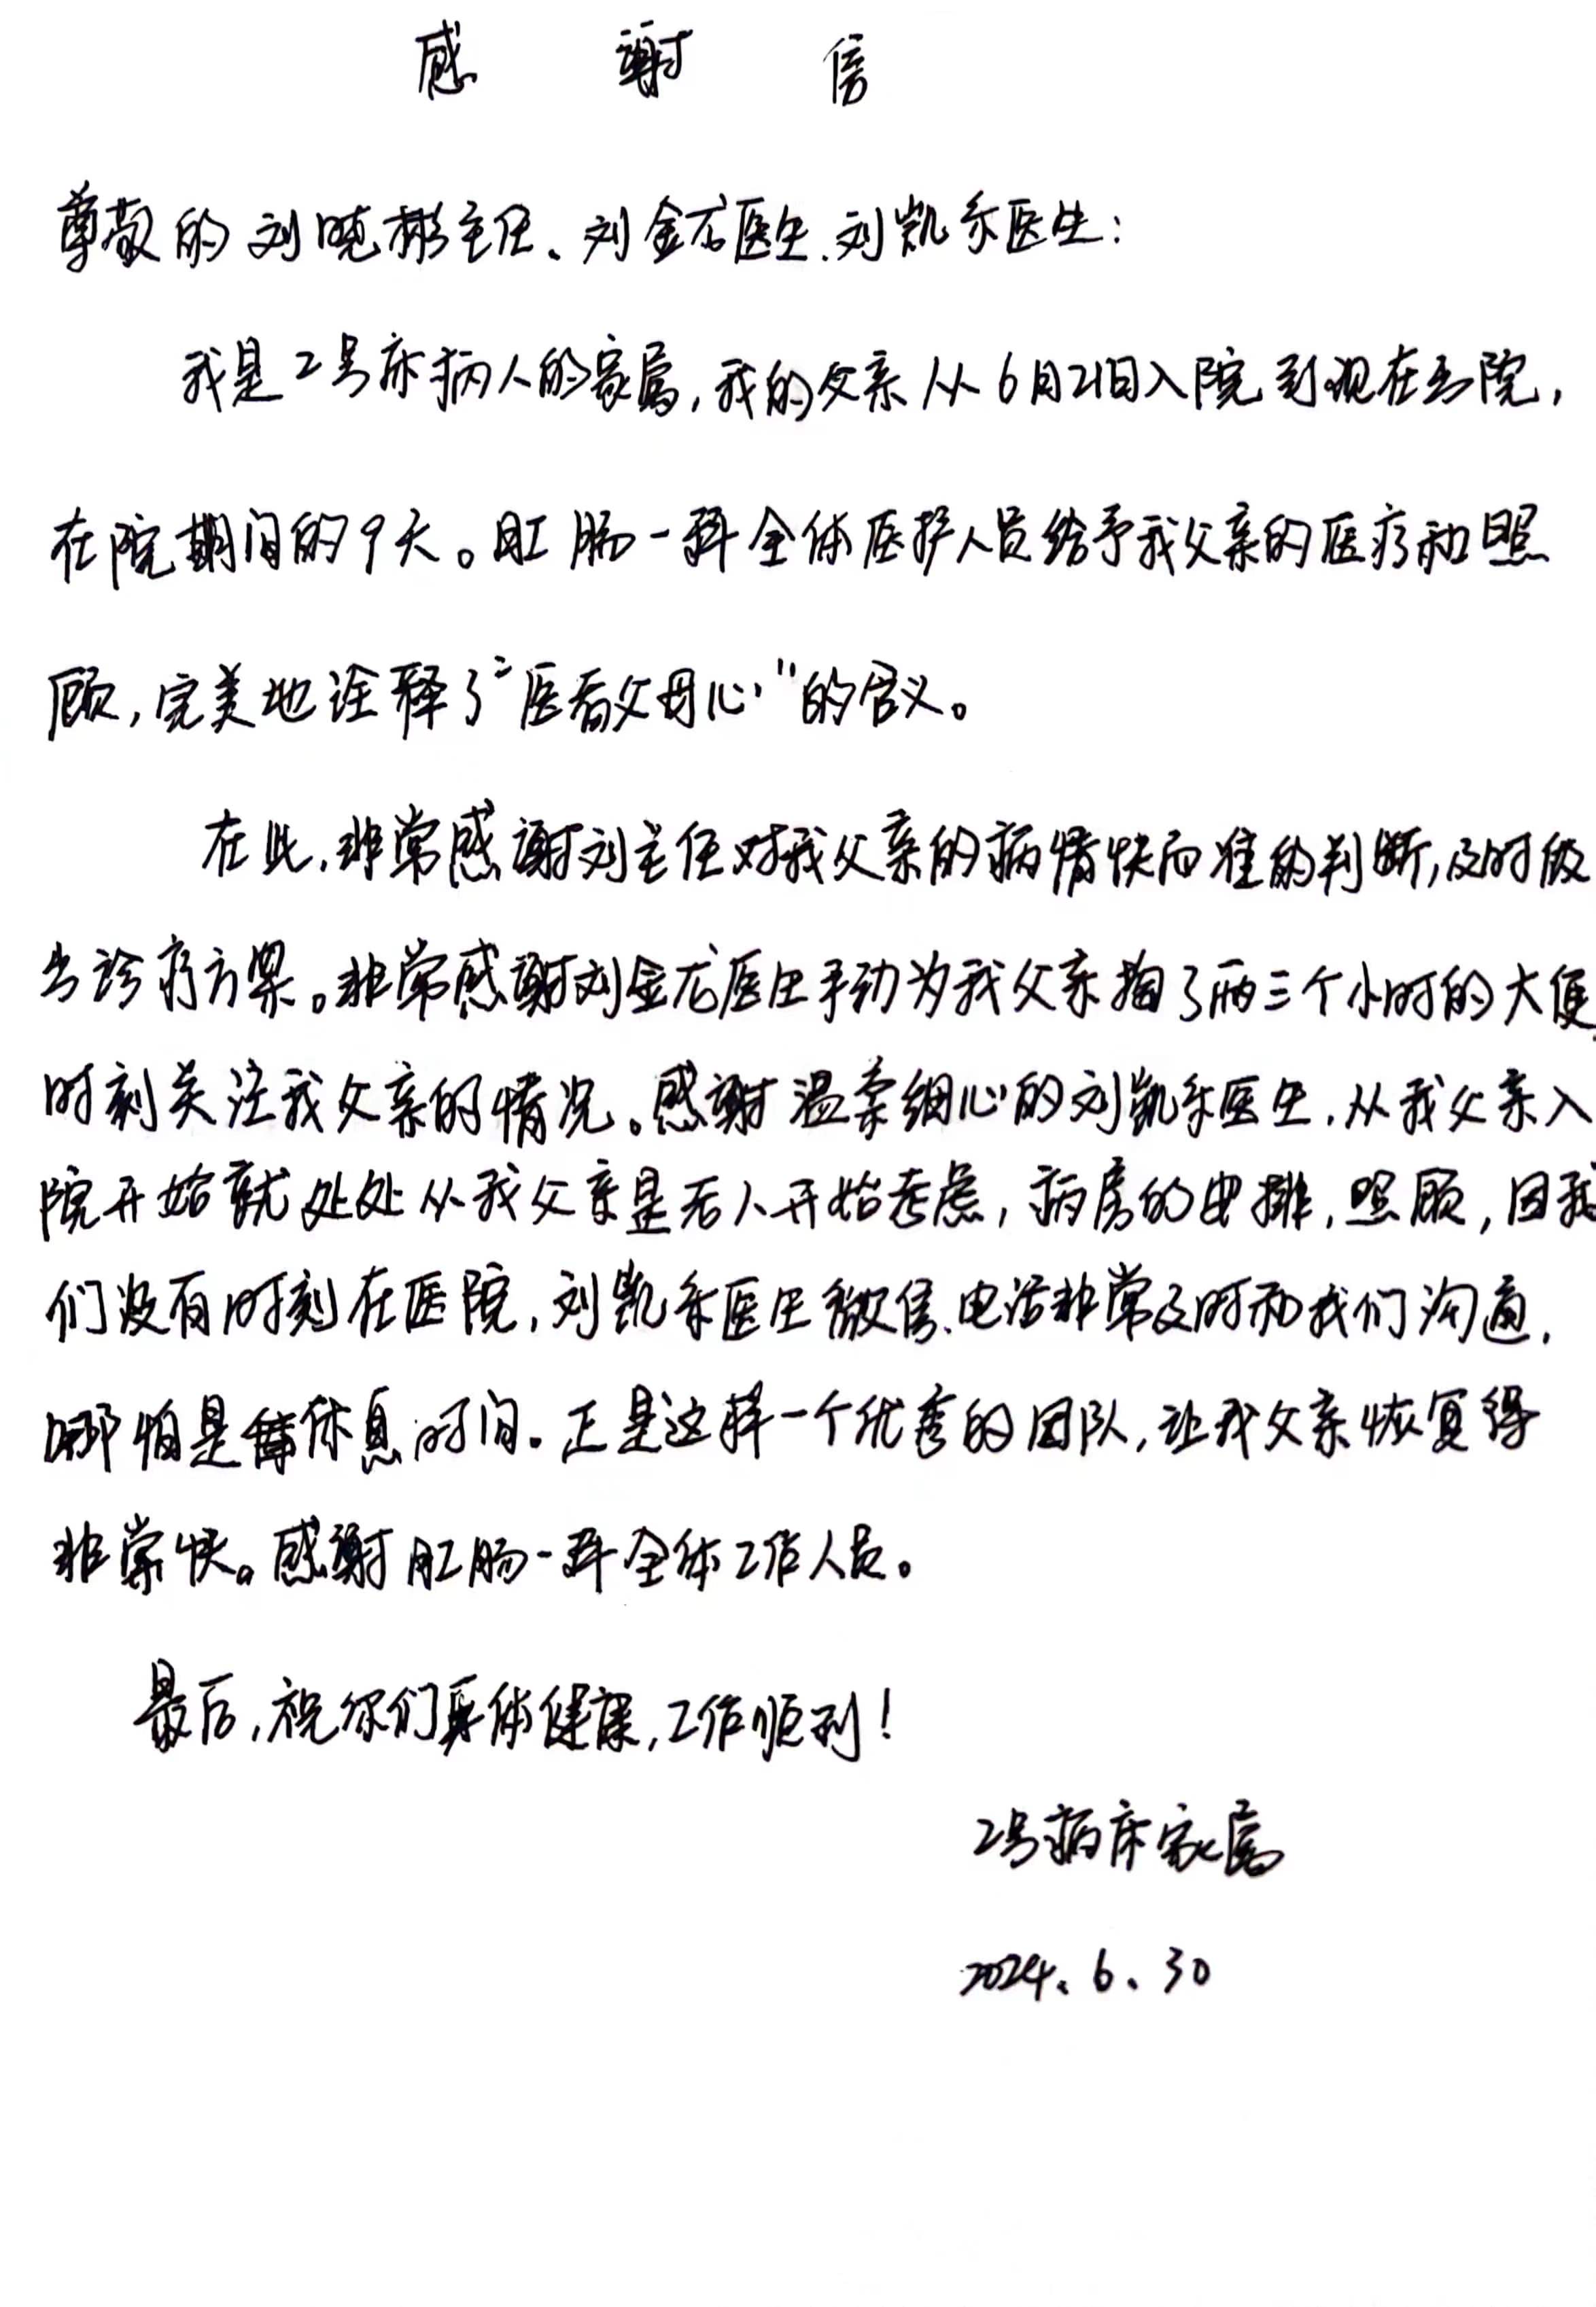 感 谢 信
尊敬的刘晓彬主任、刘金龙医生、刘凯乐医生：
我是2号床病人的家属，我的父亲从6月21日入院到现在出院，
在院期间的9天。肛肠一科全体医护人员给予我父亲的医疗和照
顾，完美地诠释了“医者父母心”的含义。
在此，非常感谢刘主任对我父亲的病情快而准的判断，及时做
出诊疗方案。非常感谢刘金龙医生手动为我父亲掏了两三个小时的大便，
时刻关注我父亲的情况。感谢温柔细心的刘凯乐医生，从我父亲入
院开始就处处从我父亲是老人开始考虑，病房的安排，照顾，因我
们没有时刻在医院，刘凯乐医生微信、电话非常及时和我们沟通，
哪怕是休息时间。正是这样一个优秀的团队，让我父亲恢复得
非常快。感谢肛肠一科全体工作人员。
最后，祝你们身体健康，工作顺利！
2号病床家属
2024.6.30